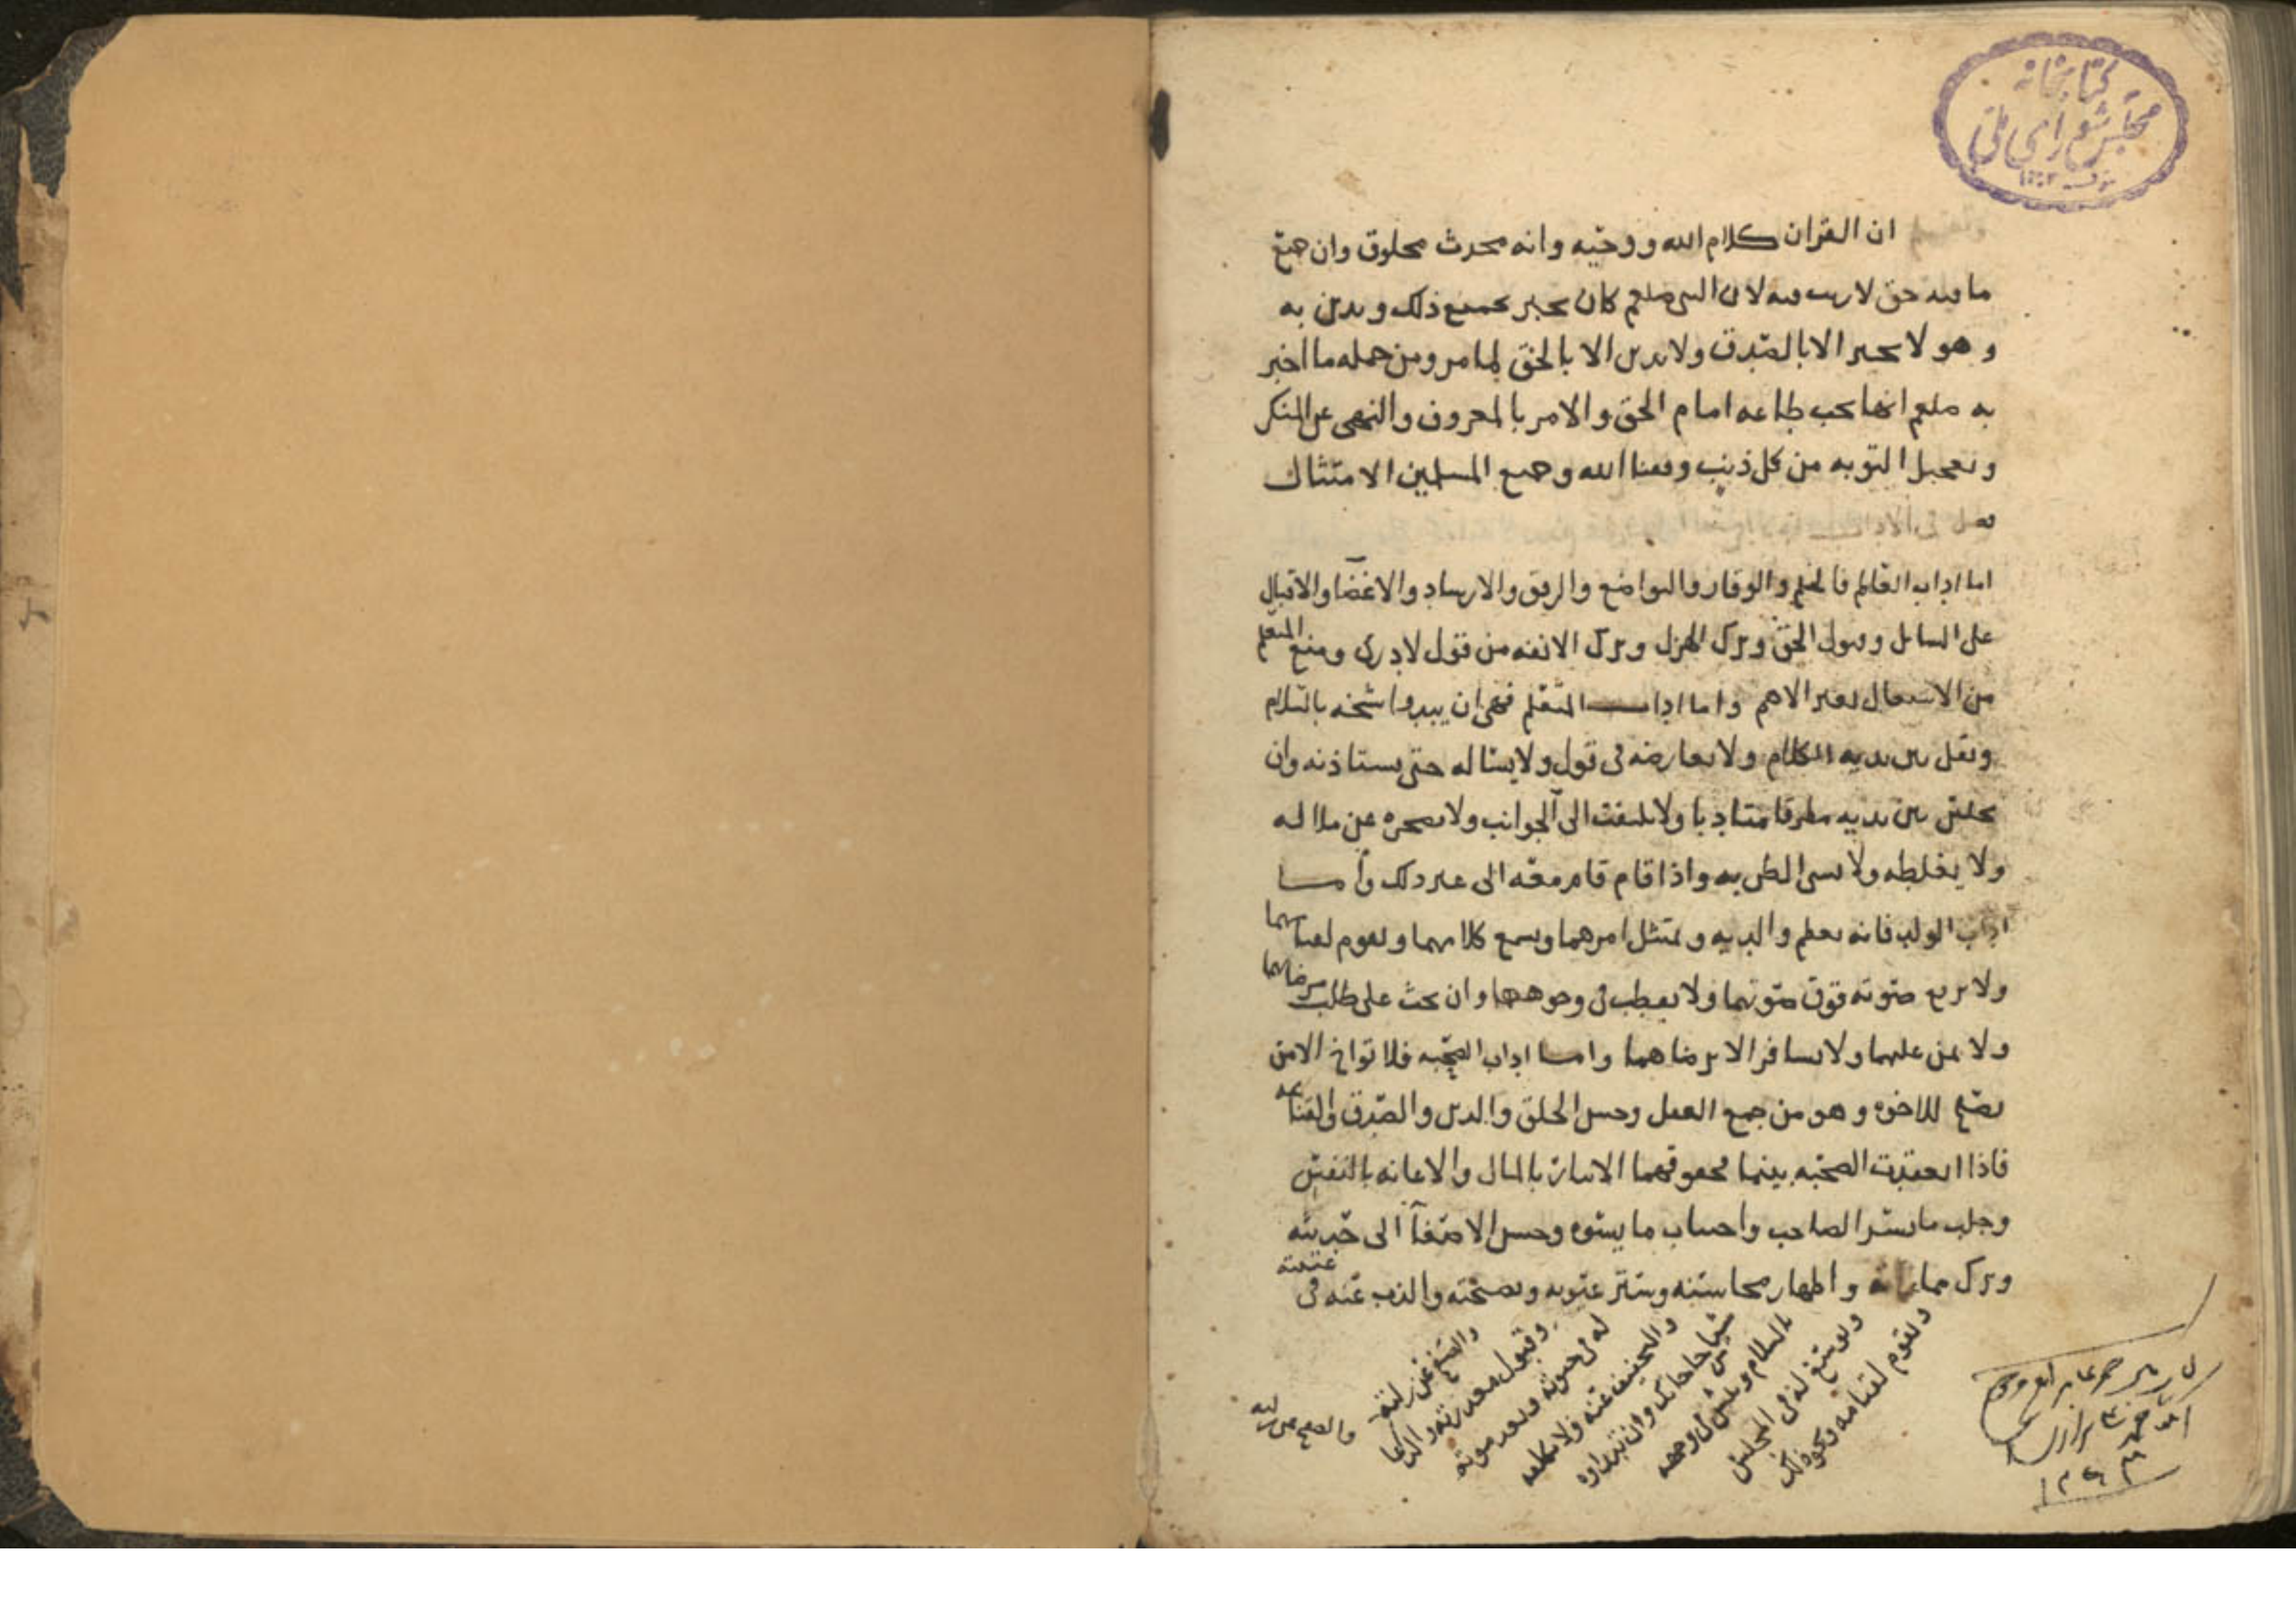 كتابخانه
مجلس شورای ملی
ان القران كلام الله ووحيه وانه محدث مخلوق وان جميع
ما فيه حق لا ريب فيه لان النبي صلعم كان يخبر بجميع ذلك ويدين به
وهو لا يخبر الا بالصدق ولا يدين الا بالحق لما مر ومن جمله ما اخبر
به صلعم انها تجب طاعه امام الحق والامر بالمعروف والنهي عن المنكر
وتعجيل التوبه من كل ذنب وفقنا الله وجميع المسلمين الامتثال
فصل في الاداب
اما اداب العالم فالحلم والوقار والتواضع والرفق والارشاد والاغضا والاقبال
على السائل وقبول الحق وترك الهزل وترك الانفه من قول لا ادري ومنع المتعلم
من الاشتغال بغير الاهم واما اداب المتعلم فهي ان يبدوا شيخه بالسلام
ويقل بين يديه الكلام ولا يعارضه في قول ولا يساله حتى يستاذنه وان
يجلس بين يديه مطرقا متادبا ولا يلتفت الى الجوانب ولا يضجره عن ملاله
ولا يغلطه ولا يسي الظن به واذا قام قام معه الى غير ذلك واما
اداب الولد فانه يعظم والديه ويمتثل امرهما ويسمع كلامهما ويقوم لقيامهما
ولا يرفع صوته فوق صوتهما ولا يقطب في وجوههما وان يحث على طلب مرضاتهما
ولا يمن عليهما ولا يسافر الا برضاهما واما اداب الصحبه فلا تواخ الا من
يصلح للاخوه وهو من جمع العقل وحسن الخلق والدين والصدق والقناعه
فاذا انعقدت الصحبه بينهما فحقوقهما الايثار بالمال والاعانه بالنفس
وجلب ما يسر الصاحب واجتناب ما يسوه وحسن الاصغآ الى حديثه
وترك مماراته واظهار محاسنه وستر عيوبه ونصيحته والذب عنه في غيبته
والصفح عن زلته
وقبول معذرته والدعا
له في حيوته وبعد موته
والتخفيف عنه ولا يكلفه
شيا من حاجاتك وان تبداوه
بالسلام وبش في وجهه
وتوسع له في المجلس
وتقوم لقيامه ونحو ذلك
والصفح عن زلته